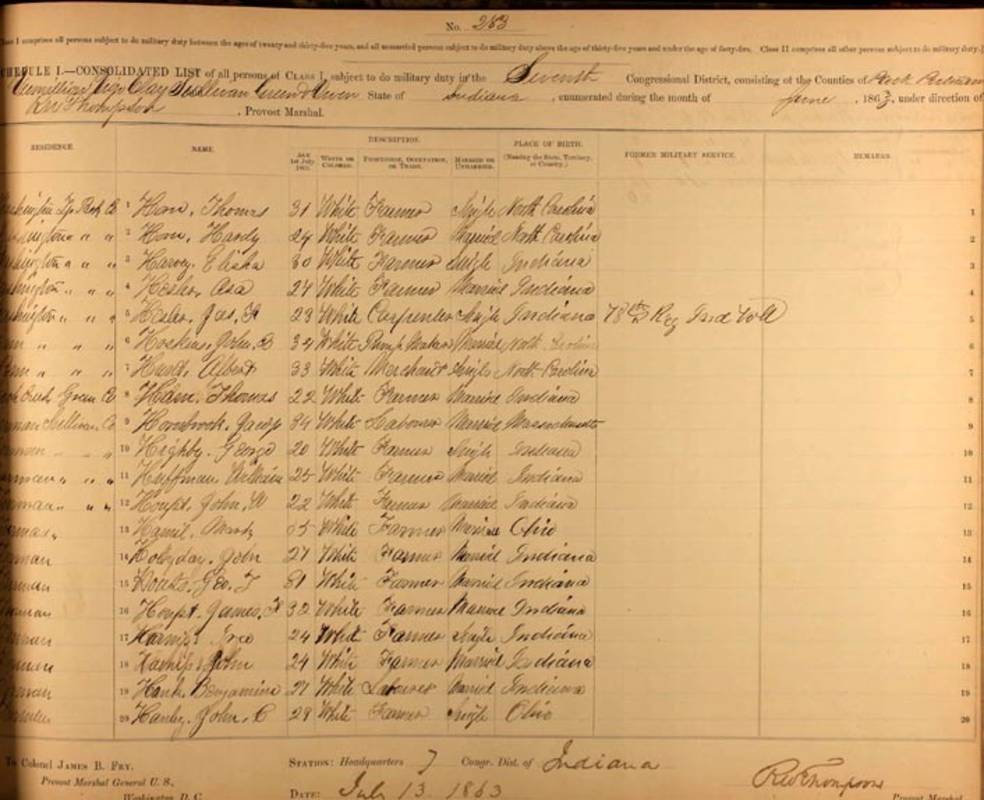 No. 283
Class I comprises all persons subject to do military duty between the ages of twenty and thirty-five years, and all unmarried persons subject to do military duty above the age of thirty-five years and under the age of forty-five. Class II comprises all other persons subject to do military duty.
SCHEDULE I.—CONSOLIDATED LIST of all persons of CLASS I, subject to do military duty in the Seventh Congressional District, consisting of the Counties of Park Putnam
Vermillion Vigo Clay Sullivan Green & Owen State of Indiana, enumerated during the month of June, 1863, under direction of
R W Thompson, Provost Marshal.
RESIDENCE. NAME. DESCRIPTION. PLACE OF BIRTH. FORMER MILITARY SERVICE. REMARKS.
AGE 1st July 1863. WHITE OR COLORED. PROFESSION, OCCUPATION, OR TRADE. MARRIED OR UNMARRIED. (Naming the State, Territory, or Country.)
1 Thomas 31 White Farmer Single North Carolina 1
2 Hardy 24 White Farmer Married North Carolina 2
3 Harvey, Elisha 30 White Farmer Single Indiana 3
4 Asa 24 White Farmer Married Indiana 4
5 Jas. 23 White Carpenter Single Indiana 78th Reg Ind Vol 5
6 Hoskins, John, B 34 White Pump Maker Married North Carolina 6
7 Albert 33 White Merchant Single North Carolina 7
Green Co 8 Ham, Thomas 22 White Farmer Married Indiana 8
Sullivan Co 9 Hornbrook, 34 White Labourer Married Massachusetts 9
10 Highby, George 20 White Farmer Single Indiana 10
11 Huffman William 25 White Farmer Married Indiana 11
12 Houpt, John, W 22 White Farmer Married Indiana 12
13 Hamil, White Farmer Married Ohio 13
14 Holoyday, John 27 White Farmer Married Indiana 14
15 Geo. T 31 White Farmer Married Indiana 15
16 Houpt, James, 32 White Farmer Married Indiana 16
17 24 White Farmer Single Indiana 17
18 John 24 White Farmer Married Indiana 18
19 Hank, Benjamine 27 White Labourer Married Indiana 19
20 Hanley, John, C 29 White Farmer Single Ohio 20
To Colonel JAMES B. FRY, STATION: Headquarters 7 Congr. Dist. of Indiana
Provost Marshal General U. S., R W Thompson
Washington, D. C. DATE: July 13 1863 Provost Marshal.